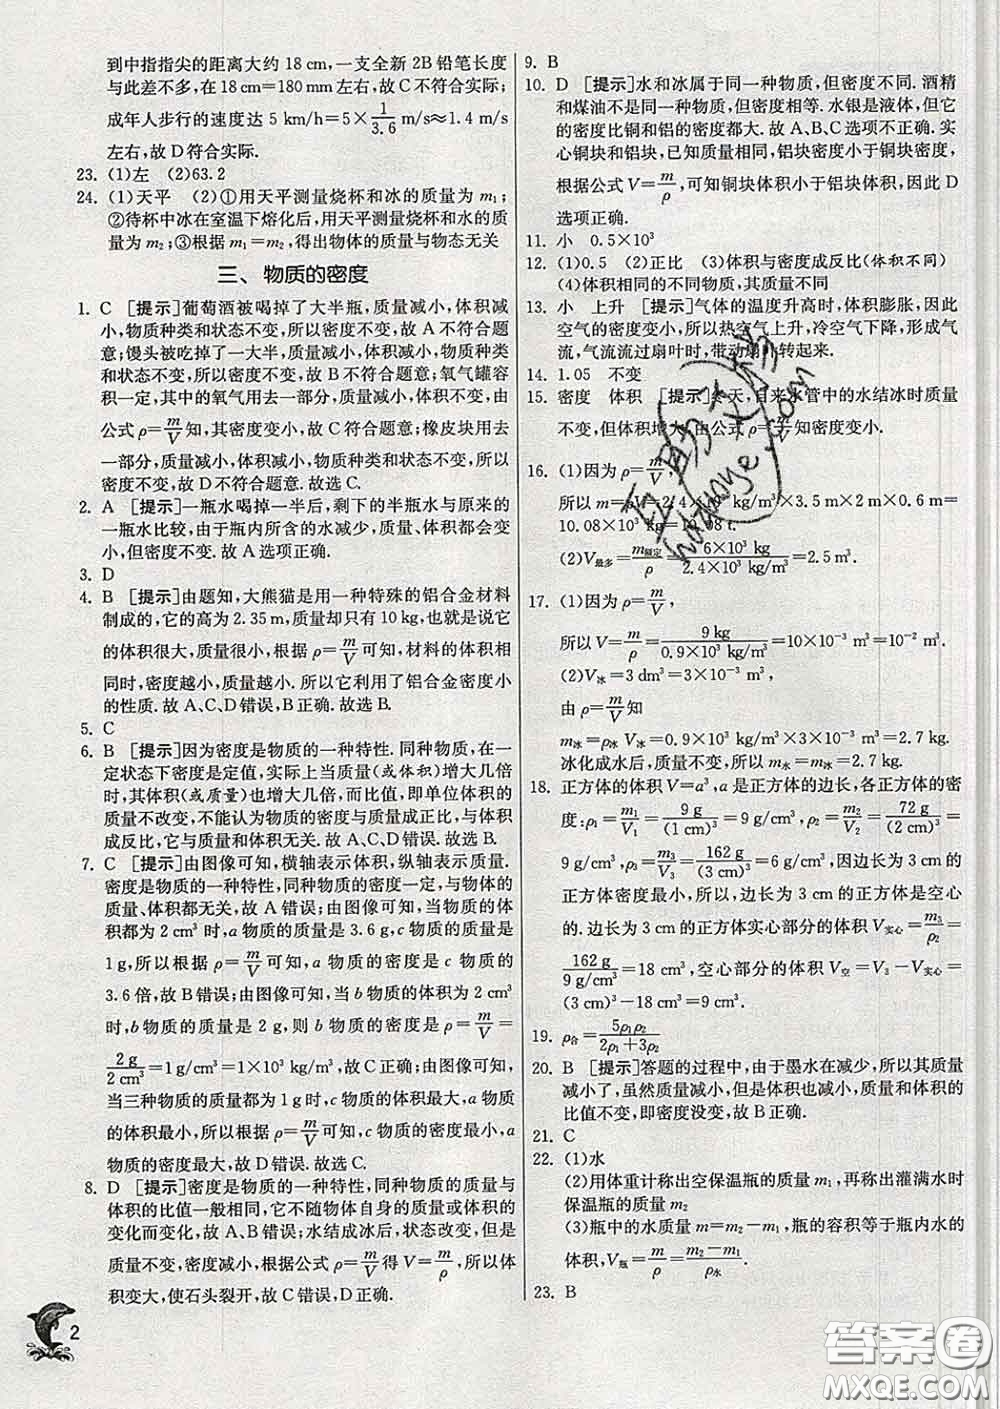 到中指指尖的距离大约 18 cm,一支全新 2B 铅笔长度
与此差不多,在 18 cm=180 mm 左右,故 C 不符合实际;
成年人步行的速度达 5 km/h=5×1/3.6 m/s≈1.4 m/s
左右,故 D 符合实际.
23. (1)左 (2)63.2
24. (1)天平 (2)①用天平测量烧杯和冰的质量为 m₁;
②待杯中冰在室温下熔化后,用天平测量烧杯和水的质
量为 m₂;③根据 m₁=m₂,得出物体的质量与物态无关
三、物质的密度
1. C [提示]葡萄酒被喝掉了大半瓶,质量减小,体积减
小,物质种类和状态不变,所以密度不变,故 A 不符合题
意;馒头被吃掉了一大半,质量减小,体积减小,物质种类
和状态不变,所以密度不变,故 B 不符合题意;氧气罐容
积一定,其中的氧气用去一部分,质量减小,体积不变,由
公式 ρ=m/V 知,其密度变小,故 C 符合题意;橡皮块用去
一部分,质量减小,体积减小,物质种类和状态不变,所以
密度不变,故 D 不符合题意. 故选 C.
2. A [提示]一瓶水喝掉一半后,剩下的半瓶水与原来的
一瓶水比较,由于瓶内所含的水减少,质量、体积都会变
小,但密度不变. 故 A 选项正确.
3. D
4. B [提示]由题知,大熊猫是用一种特殊的铝合金材料
制成的,它的高为 2.35 m,质量却只有 10 kg,就是说它
的体积很大,质量很小,根据 ρ=m/V 可知,材料的体积相
同时,密度越小,质量越小. 所以它利用了铝合金密度小
的性质. 故 A、C、D 错误,B 正确. 故选 B.
5. C
6. B [提示]因为密度是物质的一种特性. 同种物质,在一
定状态下密度是定值,实际上当质量(或体积)增大几倍
时,其体积(或质量)也增大几倍,而比值,即单位体积的
质量不改变,不能认为物质的密度与质量成正比,与体积
成反比,它与质量和体积无关. 故 A、C、D 错误. 故选 B.
7. C [提示]由图像可知,横轴表示体积,纵轴表示质量.
密度是物质的一种特性,同种物质的密度一定,与物体的
质量、体积都无关,故 A 错误;由图像可知,当物质的体
积都为 2 cm³ 时,a 物质的质量是 3.6 g,c 物质的质量是
1 g,所以根据 ρ=m/V 可知,a 物质的密度是 c 物质的
3.6 倍,故 B 错误;由图像可知,当 b 物质的体积为 2 cm³
时,b 物质的质量是 2 g,则 b 物质的密度是 ρ=m/V=
2 g/2 cm³=1 g/cm³=1×10³ kg/m³,故 C 正确;由图像可知,
当三种物质的质量都为 1 g 时,c 物质的体积最大,a 物质
的体积最小,所以根据 ρ=m/V 可知,c 物质的密度最小,a
物质的密度最大,故 D 错误. 故选 C.
8. D [提示]密度是物质的一种特性,同种物质的质量与
体积的比值一般相同,它不随物体自身的质量或体积的
变化而变化,故 A、B 错误;水结成冰后,状态改变,但是
质量不变,密度减小,根据公式 ρ=m/V 得 V=m/ρ,所以体
积变大,使石头裂开,故 C 错误,D 正确.
2
9. B
10. D [提示]水和冰属于同一种物质,但密度不同. 酒精
和煤油不是同一种物质,但密度相等. 水银是液体,但它
的密度比铜和铝的密度都大. 故 A、B、C 选项不正确. 实
心铜块和铝块,已知质量相同,铝块密度小于铜块密度,
根据公式 V=m/ρ,可知铜块体积小于铝块体积,因此 D
选项正确.
11. 小 0.5×10³
12. (1)0.5 (2)正比 (3)体积与密度成反比(体积不同)
(4)体积相同的不同物质,其质量不同
13. 小 上升 [提示]气体的温度升高时,体积膨胀,因此
空气的密度变小,所以热空气上升,冷空气下降,形成气
流,气流流过扇叶时,带动扇叶转起来.
14. 1.05 不变
15. 密度 体积 [提示]冬天,自来水管中的水结冰时质量
不变,但体积增大,由公式 ρ=m/V 知密度变小.
16. (1)因为 ρ=m/V,
所以 m=ρV=2.4×10³ kg/m³×3.5 m×2 m×0.6 m=
10.08×10³ kg=10.08 t.
(2)V最多=m额定/ρ=6×10³ kg/2.4×10³ kg/m³=2.5 m³.
17. (1)因为 ρ=m/V,
所以 V=m/ρ=9 kg/0.9×10³ kg/m³=10×10⁻³ m³=10⁻² m³.
(2)V冰=3 dm³=3×10⁻³ m³,
由 ρ=m/V 知
m冰=ρ冰 V冰=0.9×10³ kg/m³×3×10⁻³ m³=2.7 kg.
冰化成水后,质量不变,所以 m水=m冰=2.7 kg.
18. 正方体的体积 V=a³,a 是正方体的边长,各正方体的密
度:ρ₁=m₁/V₁=9 g/(1 cm)³=9 g/cm³,ρ₂=m₂/V₂=72 g/(2 cm)³=
9 g/cm³,ρ₃=m₃/V₃=162 g/(3 cm)³=6 g/cm³,因边长为 3 cm 的
正方体密度最小,所以,边长为 3 cm 的正方体是空心
的. 边长为 3 cm 的正方体实心部分的体积 V实心=m₃/ρ₂=
162 g/9 g/cm³=18 cm³,空心部分的体积 V空=V₃−V实心=
(3 cm)³−18 cm³=9 cm³.
19. ρ合=5ρ₁ρ₂/2ρ₁+3ρ₂
20. B [提示]答题的过程中,由于墨水在减少,所以其质量
减小了,虽然质量减小,但是体积也减小,质量和体积的
比值不变,即密度没变,故 B 正确.
21. C
22. (1)水
(2)用体重计称出空保温瓶的质量 m₁,再称出灌满水时
保温瓶的质量 m₂
(3)瓶中的水质量 m=m₂−m₁,瓶的容积等于瓶内水的
体积,V瓶=m/ρ=m₂−m₁/ρ水.
23. B
答案圈
MXQE.COM